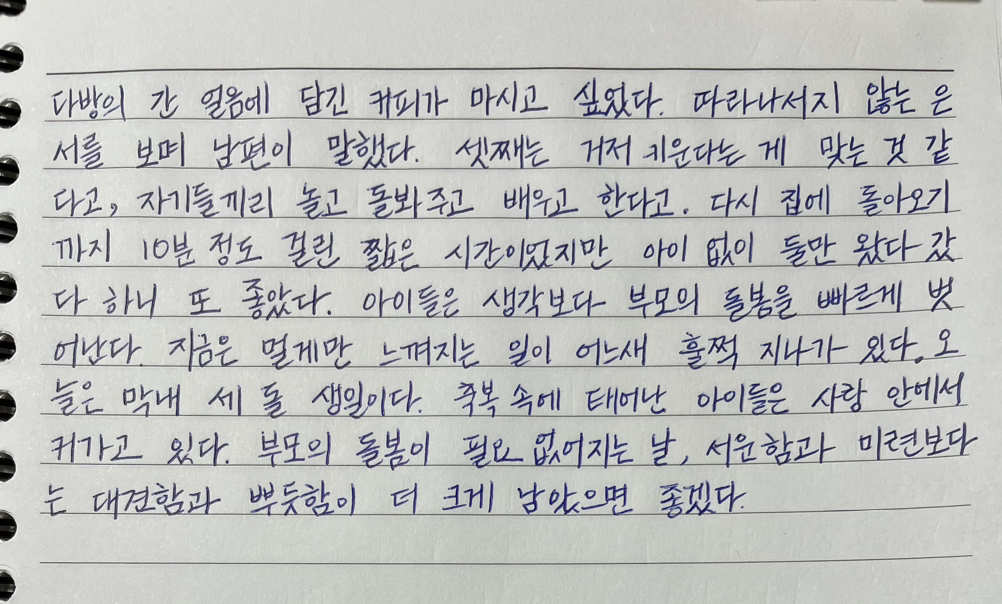 다방의 간 얼음에 담긴 커피가 마시고 싶었다. 따라나서지 않는 은
서를 보며 남편이 말했다. 셋째는 거저 키운다는 게 맞는 것 같
다고, 자기들끼리 놀고 돌봐주고 배우고 한다고. 다시 집에 돌아오기
까지 10분 정도 걸린 짧은 시간이었지만 아이 없이 둘만 왔다 갔
다 하니 또 좋았다. 아이들은 생각보다 부모의 돌봄을 빠르게 벗
어난다. 지금은 멀게만 느껴지는 일이 어느새 훌쩍 지나가 있다. 오
늘은 막내 세 돌 생일이다. 축복 속에 태어난 아이들은 사랑 안에서
커가고 있다. 부모의 돌봄이 필요 없어지는 날, 서운함과 미련보다
는 대견함과 뿌듯함이 더 크게 남았으면 좋겠다.